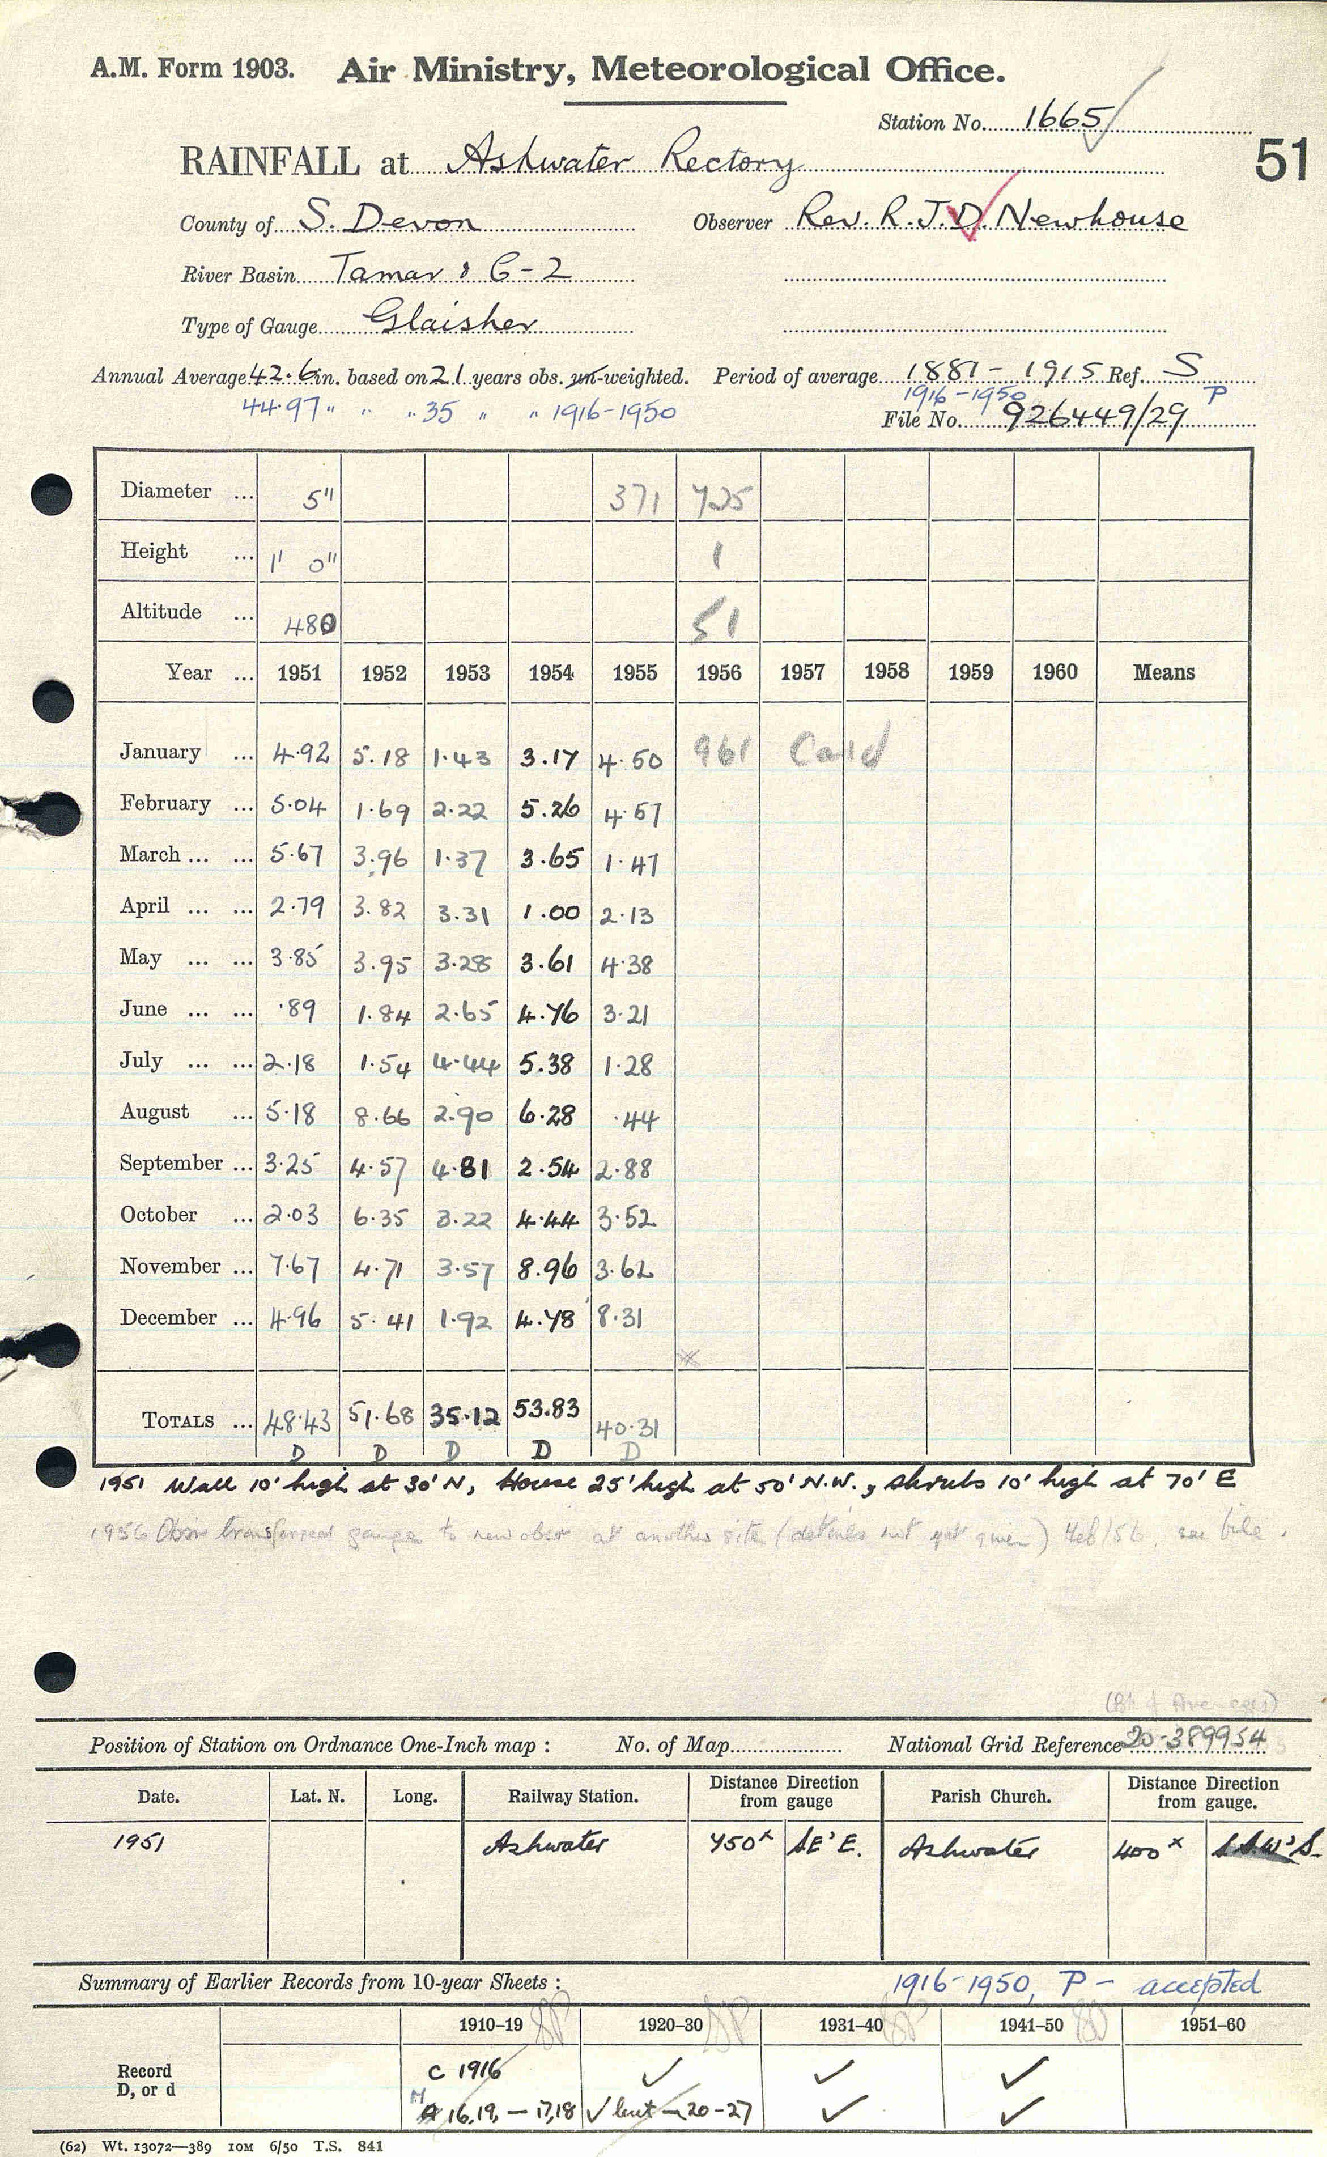 A.M. Form 1903. Air Ministry, Meteorological Office.
Station No. 1665
51
RAINFALL at Ashwater Rectory
County of S. Devon Observer Rev. R. J. D. Newhouse
River Basin Tamar : 6-2
Type of Gauge Glaisher
Annual Average 42.6 in. based on 21 years obs. un-weighted. Period of average 1881 - 1915 Ref. S
44.97 " " " 35 " " 1916-1950 1916-1950 P
File No. 926449/29
Diameter ... 5" 371 725
Height ... 1' 0" 1
Altitude ... 480 51
Year ... 1951 1952 1953 1954 1955 1956 1957 1958 1959 1960 Means
January ... 4.92 5.18 1.43 3.17 4.50 961 Card
February ... 5.04 1.69 2.22 5.26 4.57
March ... ... 5.67 3.96 1.37 3.65 1.47
April ... ... 2.79 3.82 3.31 1.00 2.13
May ... ... 3.85 3.95 3.28 3.61 4.38
June ... ... .89 1.84 2.65 4.76 3.21
July ... ... 2.18 1.54 4.44 5.38 1.28
August ... 5.18 8.66 2.90 6.28 .44
September ... 3.25 4.57 4.81 2.54 2.88
October ... 2.03 6.35 3.22 4.44 3.52
November ... 7.67 4.71 3.57 8.96 3.62
December ... 4.96 5.41 1.92 4.78 8.31
TOTALS ... 48.43 51.68 35.12 53.83 40.31
D D D D D
1951 Wall 10' high at 30' N, House 25' high at 50' N.W., shrubs 10' high at 70' E
1956 Obsr transferred gauge to new obsr at another site (details not yet given) Feb/56. see file.
Position of Station on Ordnance One-Inch map : No. of Map National Grid Reference 20-389954
Date. Lat. N. Long. Railway Station. Distance from gauge Direction Parish Church. Distance from gauge. Direction
1951 Ashwater 750x SE'E. Ashwater 400x S.S.W'S.
Summary of Earlier Records from 10-year Sheets : 1916-1950, P - accepted
1910-19 1920-30 1931-40 1941-50 1951-60
Record C 1916 ✓ ✓ ✓
D, or d 16,19, - 17,18 ✓ 20-27 ✓ ✓
(62) Wt. 13072—389 10M 6/50 T.S. 841